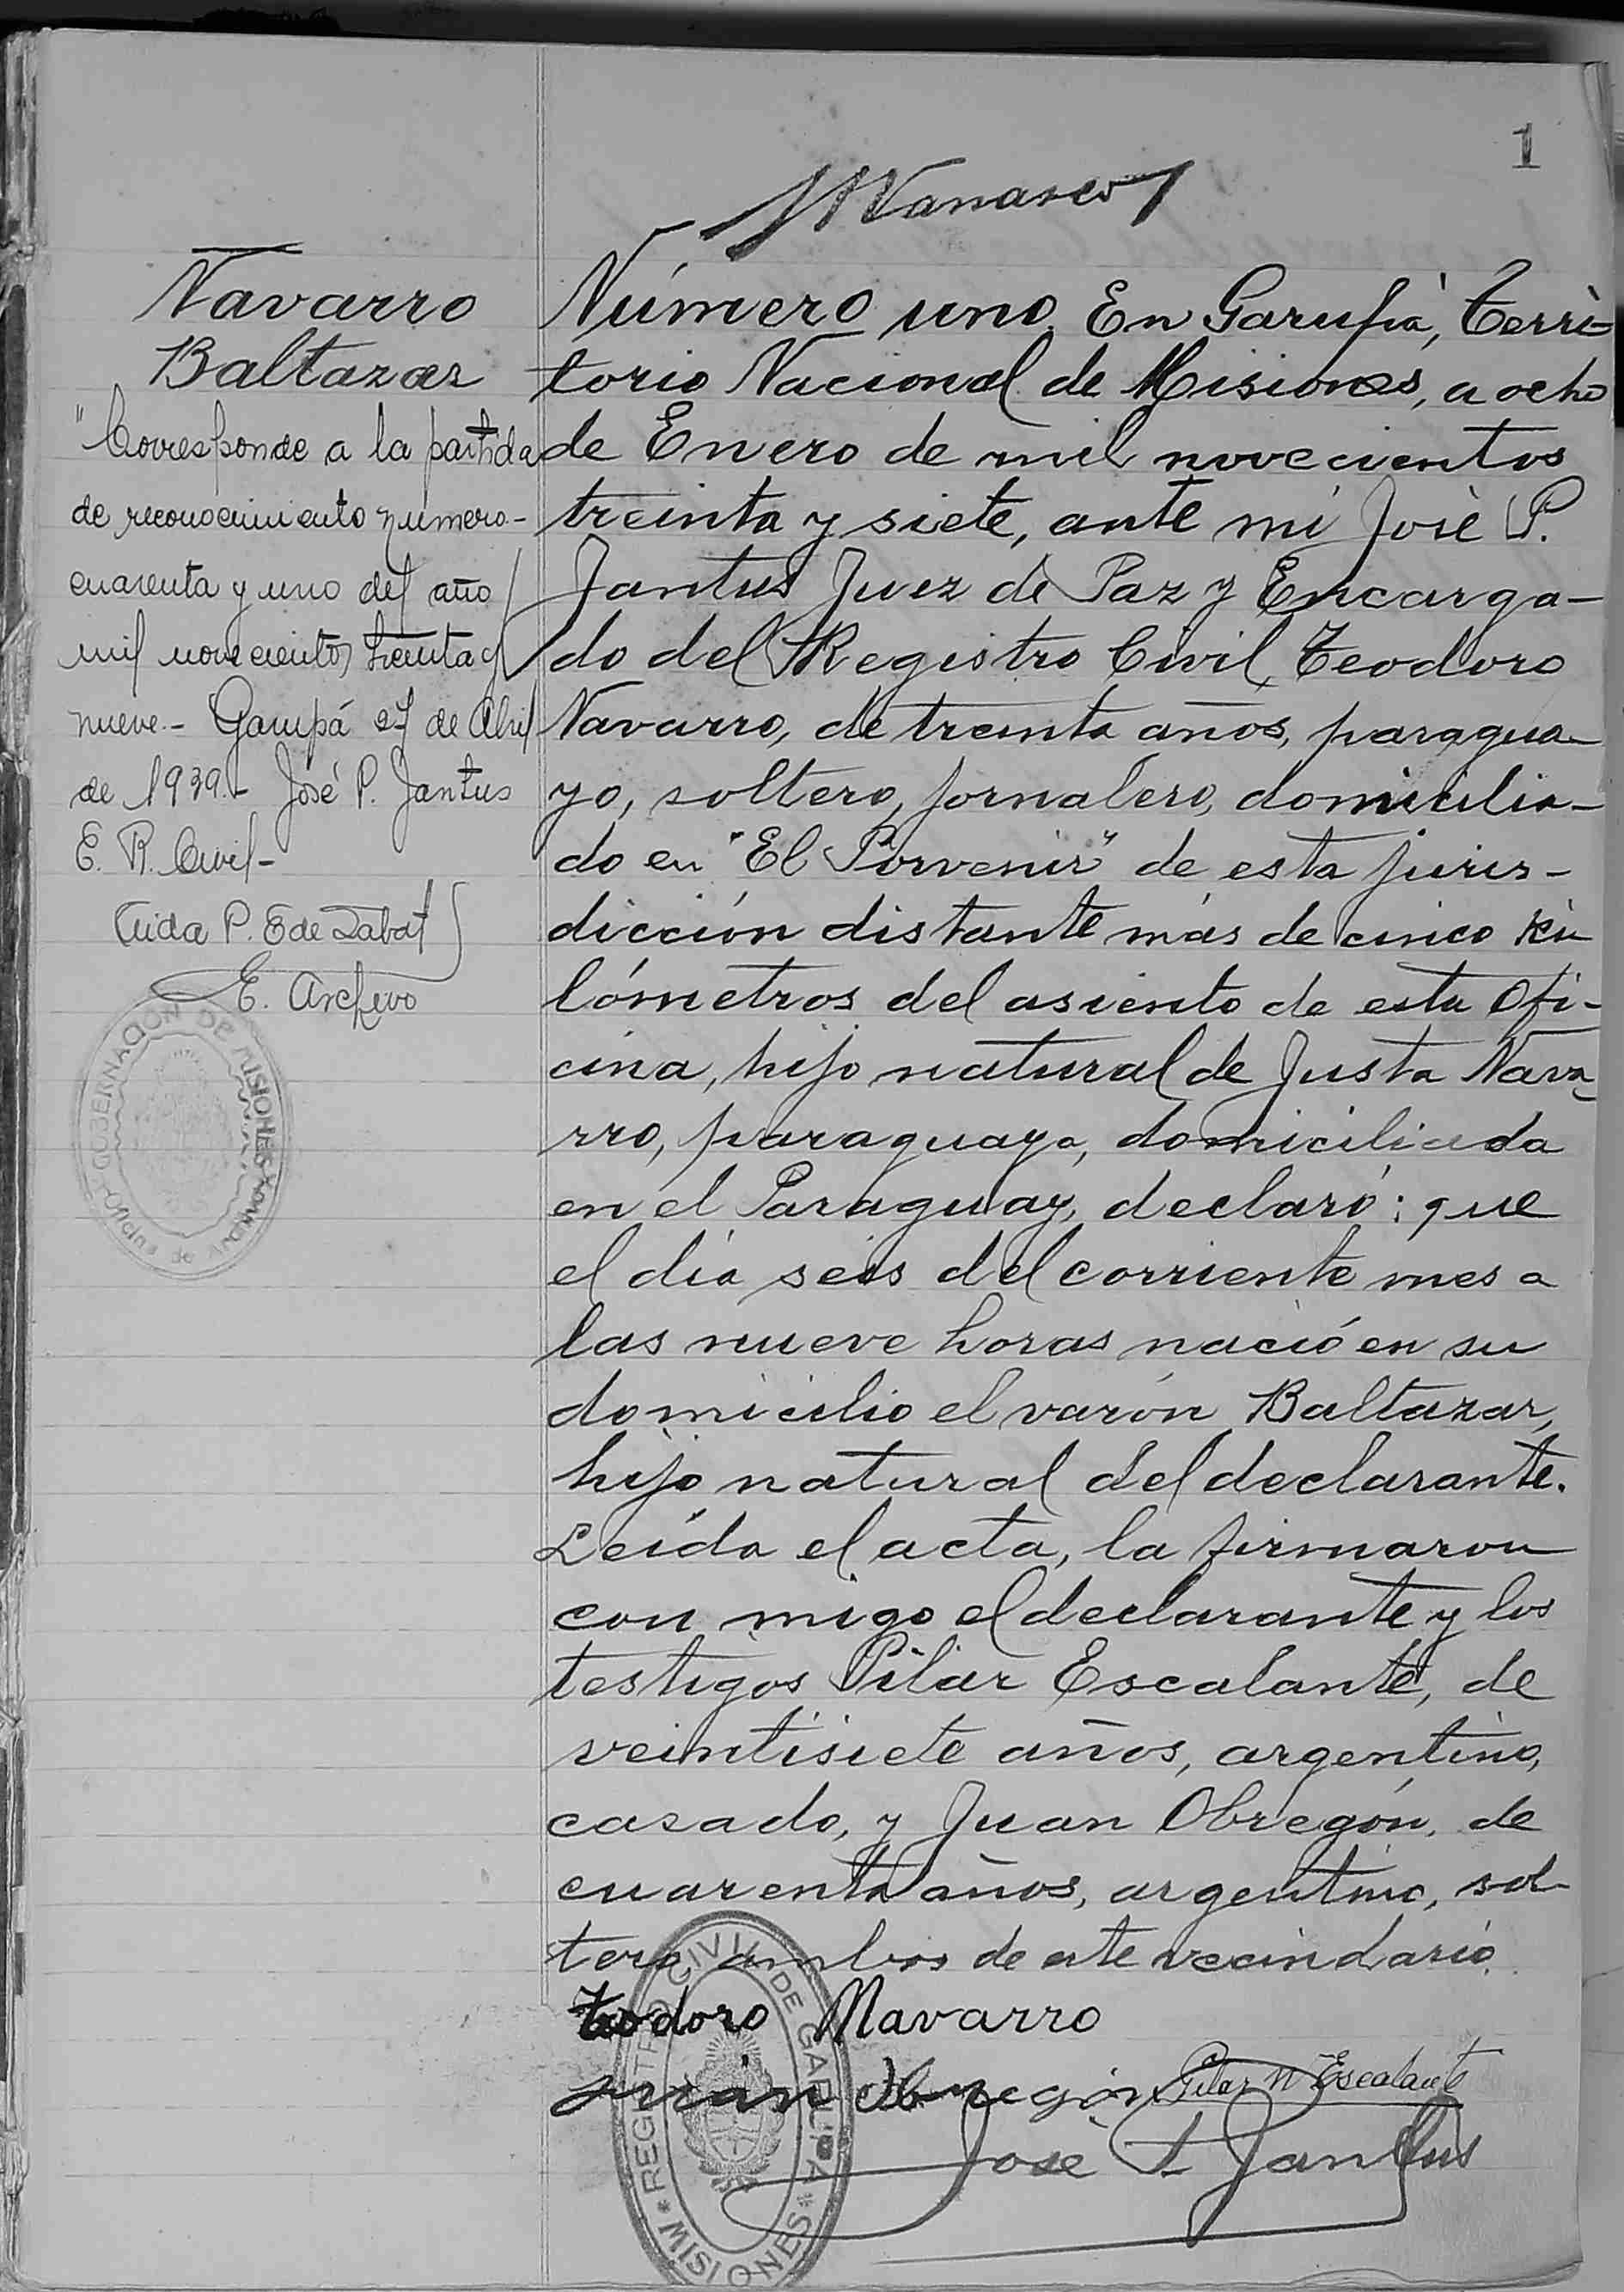 1
Navarro
Baltazar
"Corresponde a la partida
de reconocimiento numero-
cuarenta y uno del año
mil novecientos treinta y
nueve.- Garupá 27 de Abril
de 1939.- José P. Jantus
E. R. Civil-
E. Archivo
GOBERNACION DE MISIONES
Oficina de
Número uno. En Garupá, Terri=
torio Nacional de Misiones, a ocho
de Enero de mil novecientos
treinta y siete, ante mí José P.
Jantus Juez de Paz y Encarga-
do del Registro Civil, Teodoro
Navarro, de treinta años, paragua-
yo, soltero, jornalero, domicilia-
do en "El Porvenir" de esta juris-
dicción distante más de cinco ki-
lómetros del asiento de esta Ofi-
cina, hijo natural de Justa Nava-
rro, paraguaya, domiciliada
en el Paraguay, declaró: que
el día seis del corriente mes a
las nueve horas nació en su
domicilio el varón Baltazar,
hijo natural del declarante.
Leída el acta, la firmaron
con migo el declarante y los
testigos Pilar Escalante, de
veintisiete años, argentino,
casado, y Juan Obregón, de
cuarenta años, argentino, sol-
tero, ambos de este vecindario.
Teodoro Navarro
Juan Obregón Pilar N Escalante
José P Jantus
REGISTRO CIVIL DE GARUPA
* MISIONES *